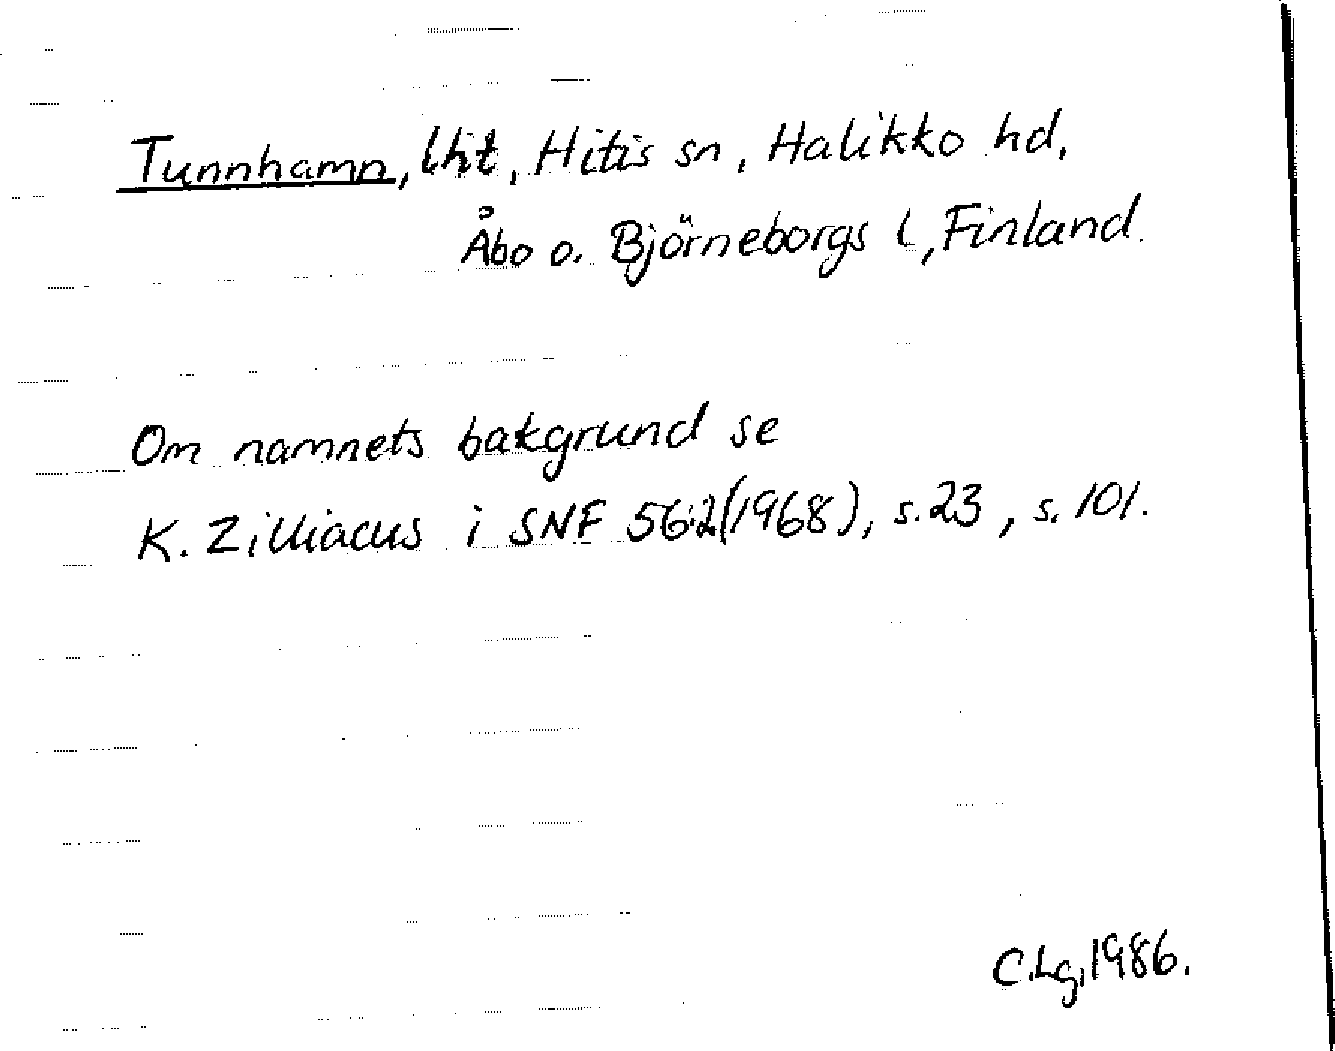 Tunnhamn, lht, Hitis sn, Halikko hd,
Åbo o. Björneborgs l, Finland.
Om namnets bakgrund se
K. Zilliacus i SNF 56:2(1968), s. 23, s. 101.
C.Lg, 1986.